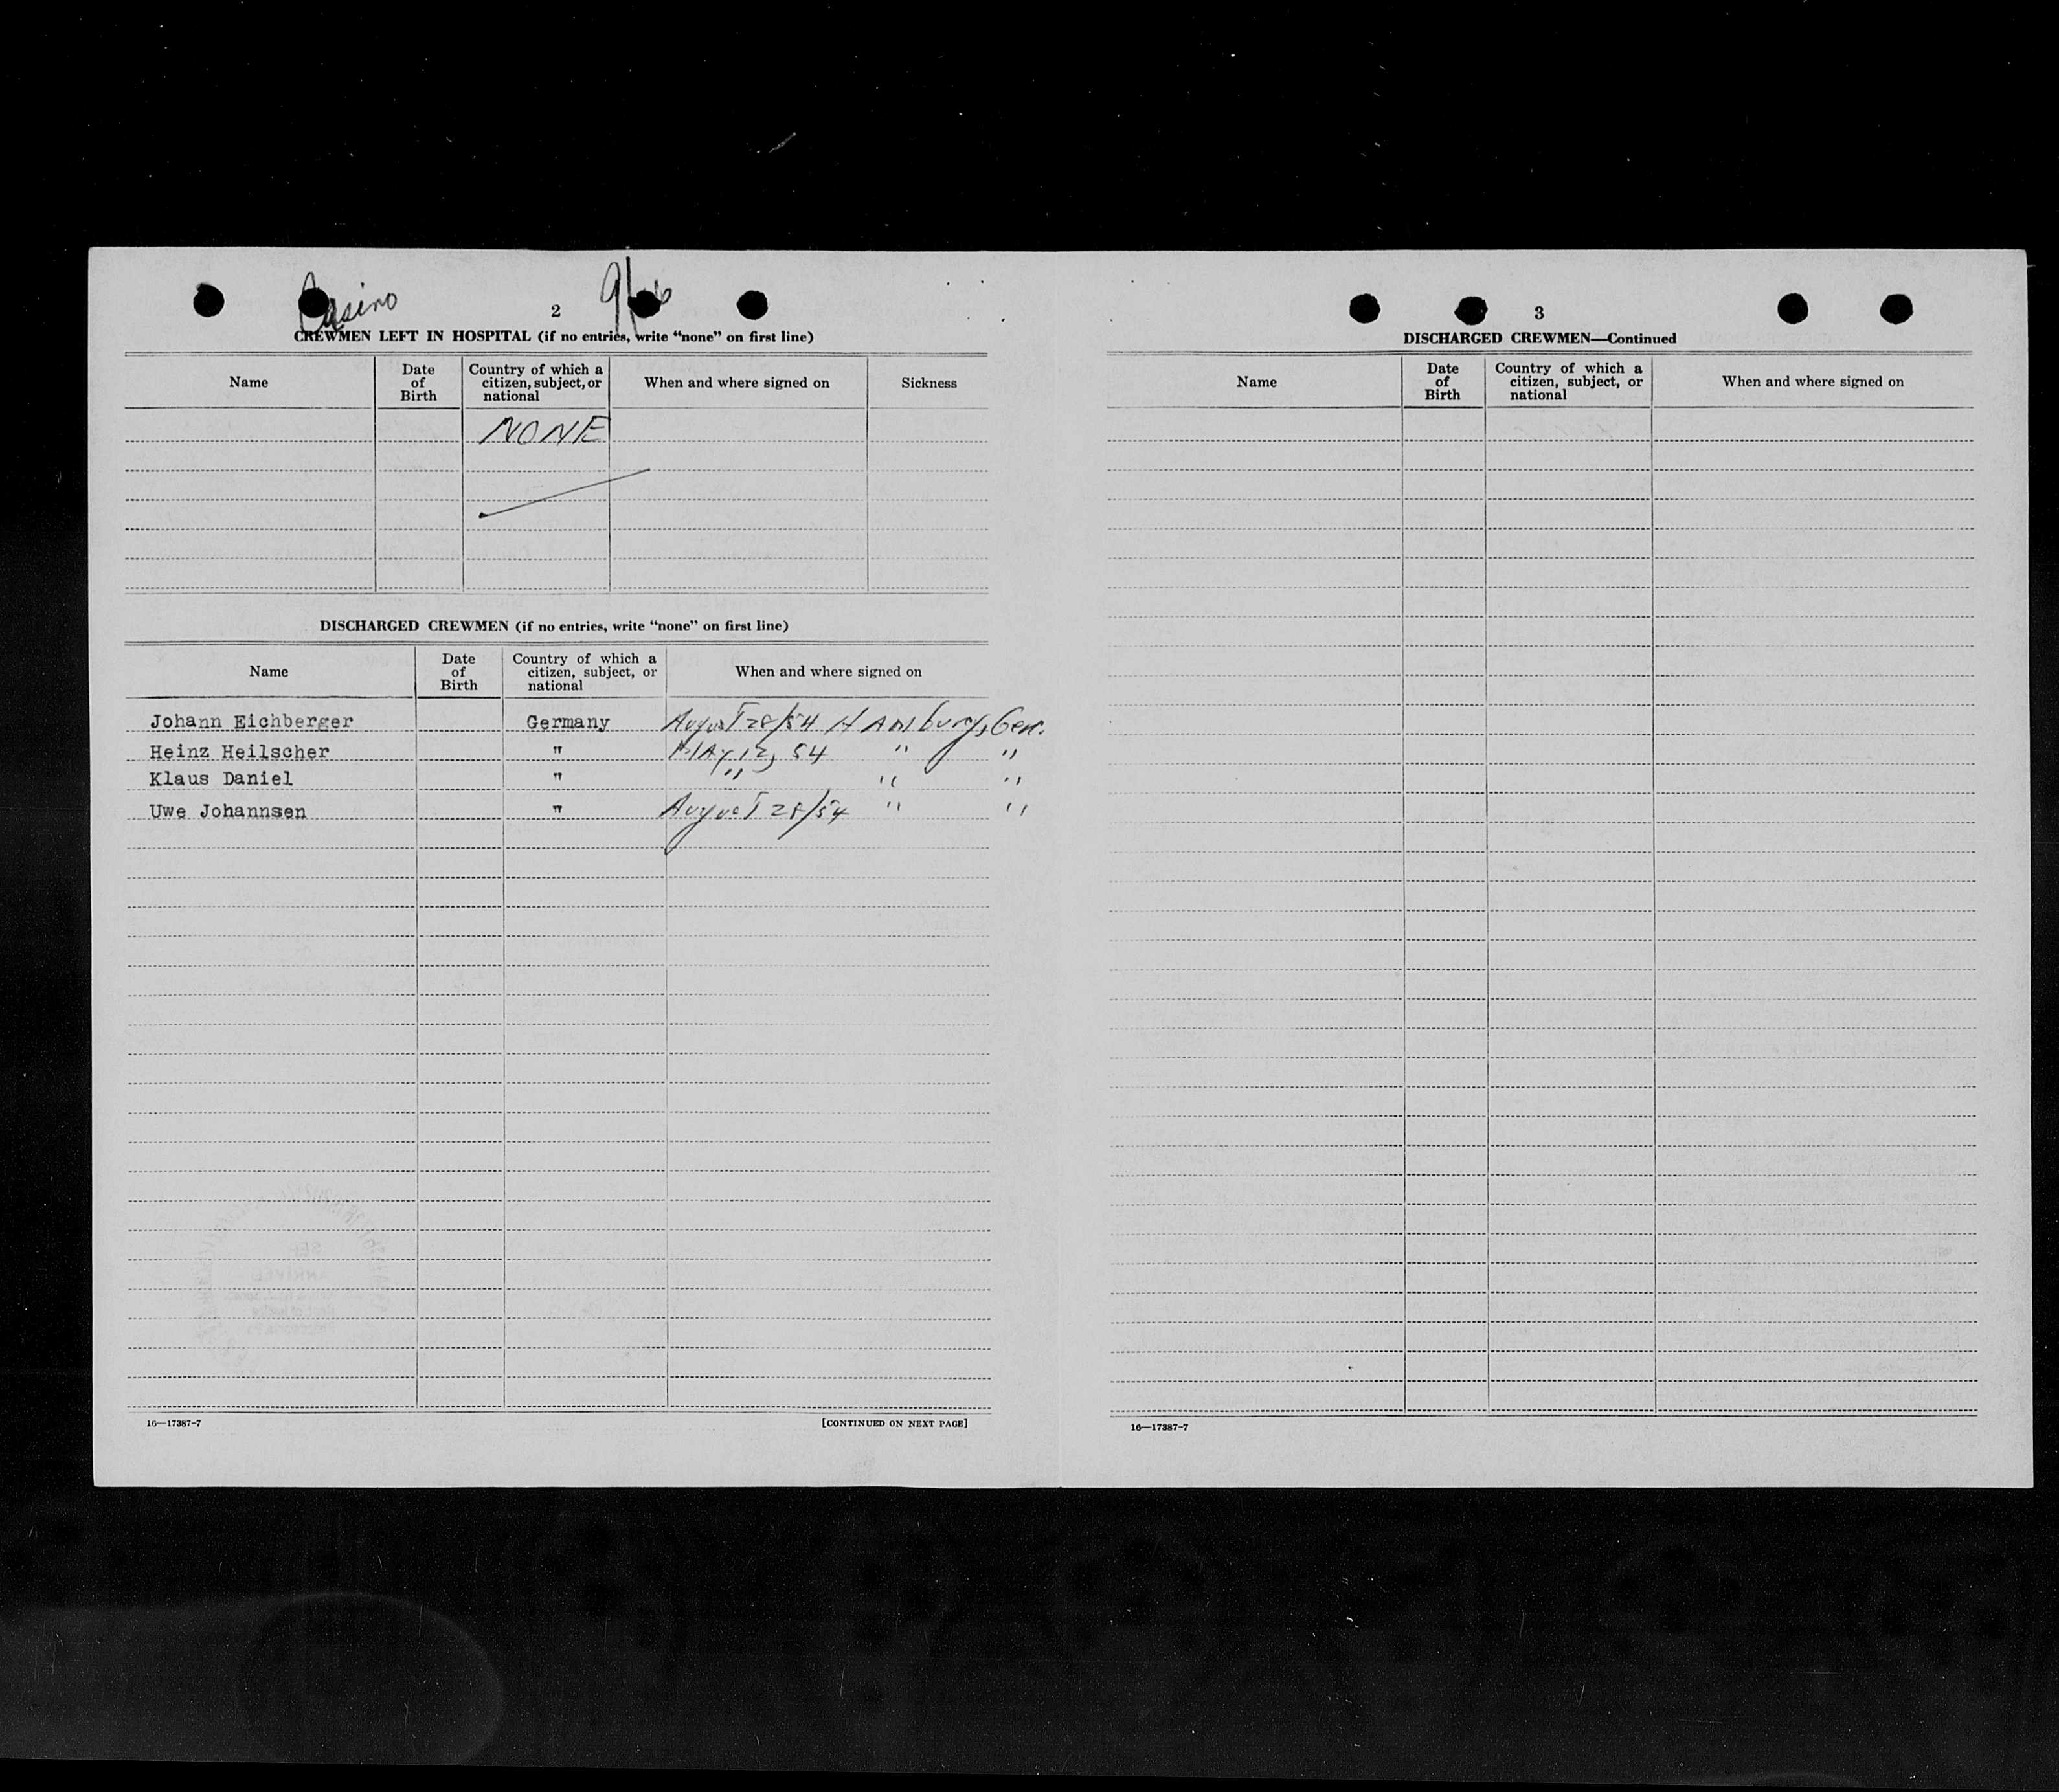 Casino
2
CREWMEN LEFT IN HOSPITAL (if no entries, write "none" on first line)
Name Date of Birth Country of which a citizen, subject, or national When and where signed on Sickness
NONE
DISCHARGED CREWMEN (if no entries, write "none" on first line)
Name Date of Birth Country of which a citizen, subject, or national When and where signed on
Johann Eichberger Germany August 28/54 Hamburg, Ger.
Heinz Heilscher " May 12, 54 " "
Klaus Daniel " " " "
Uwe Johannsen " August 28/54 " "
16—17387-7 [CONTINUED ON NEXT PAGE]
3
DISCHARGED CREWMEN—Continued
Name Date of Birth Country of which a citizen, subject, or national When and where signed on
16—17387-7